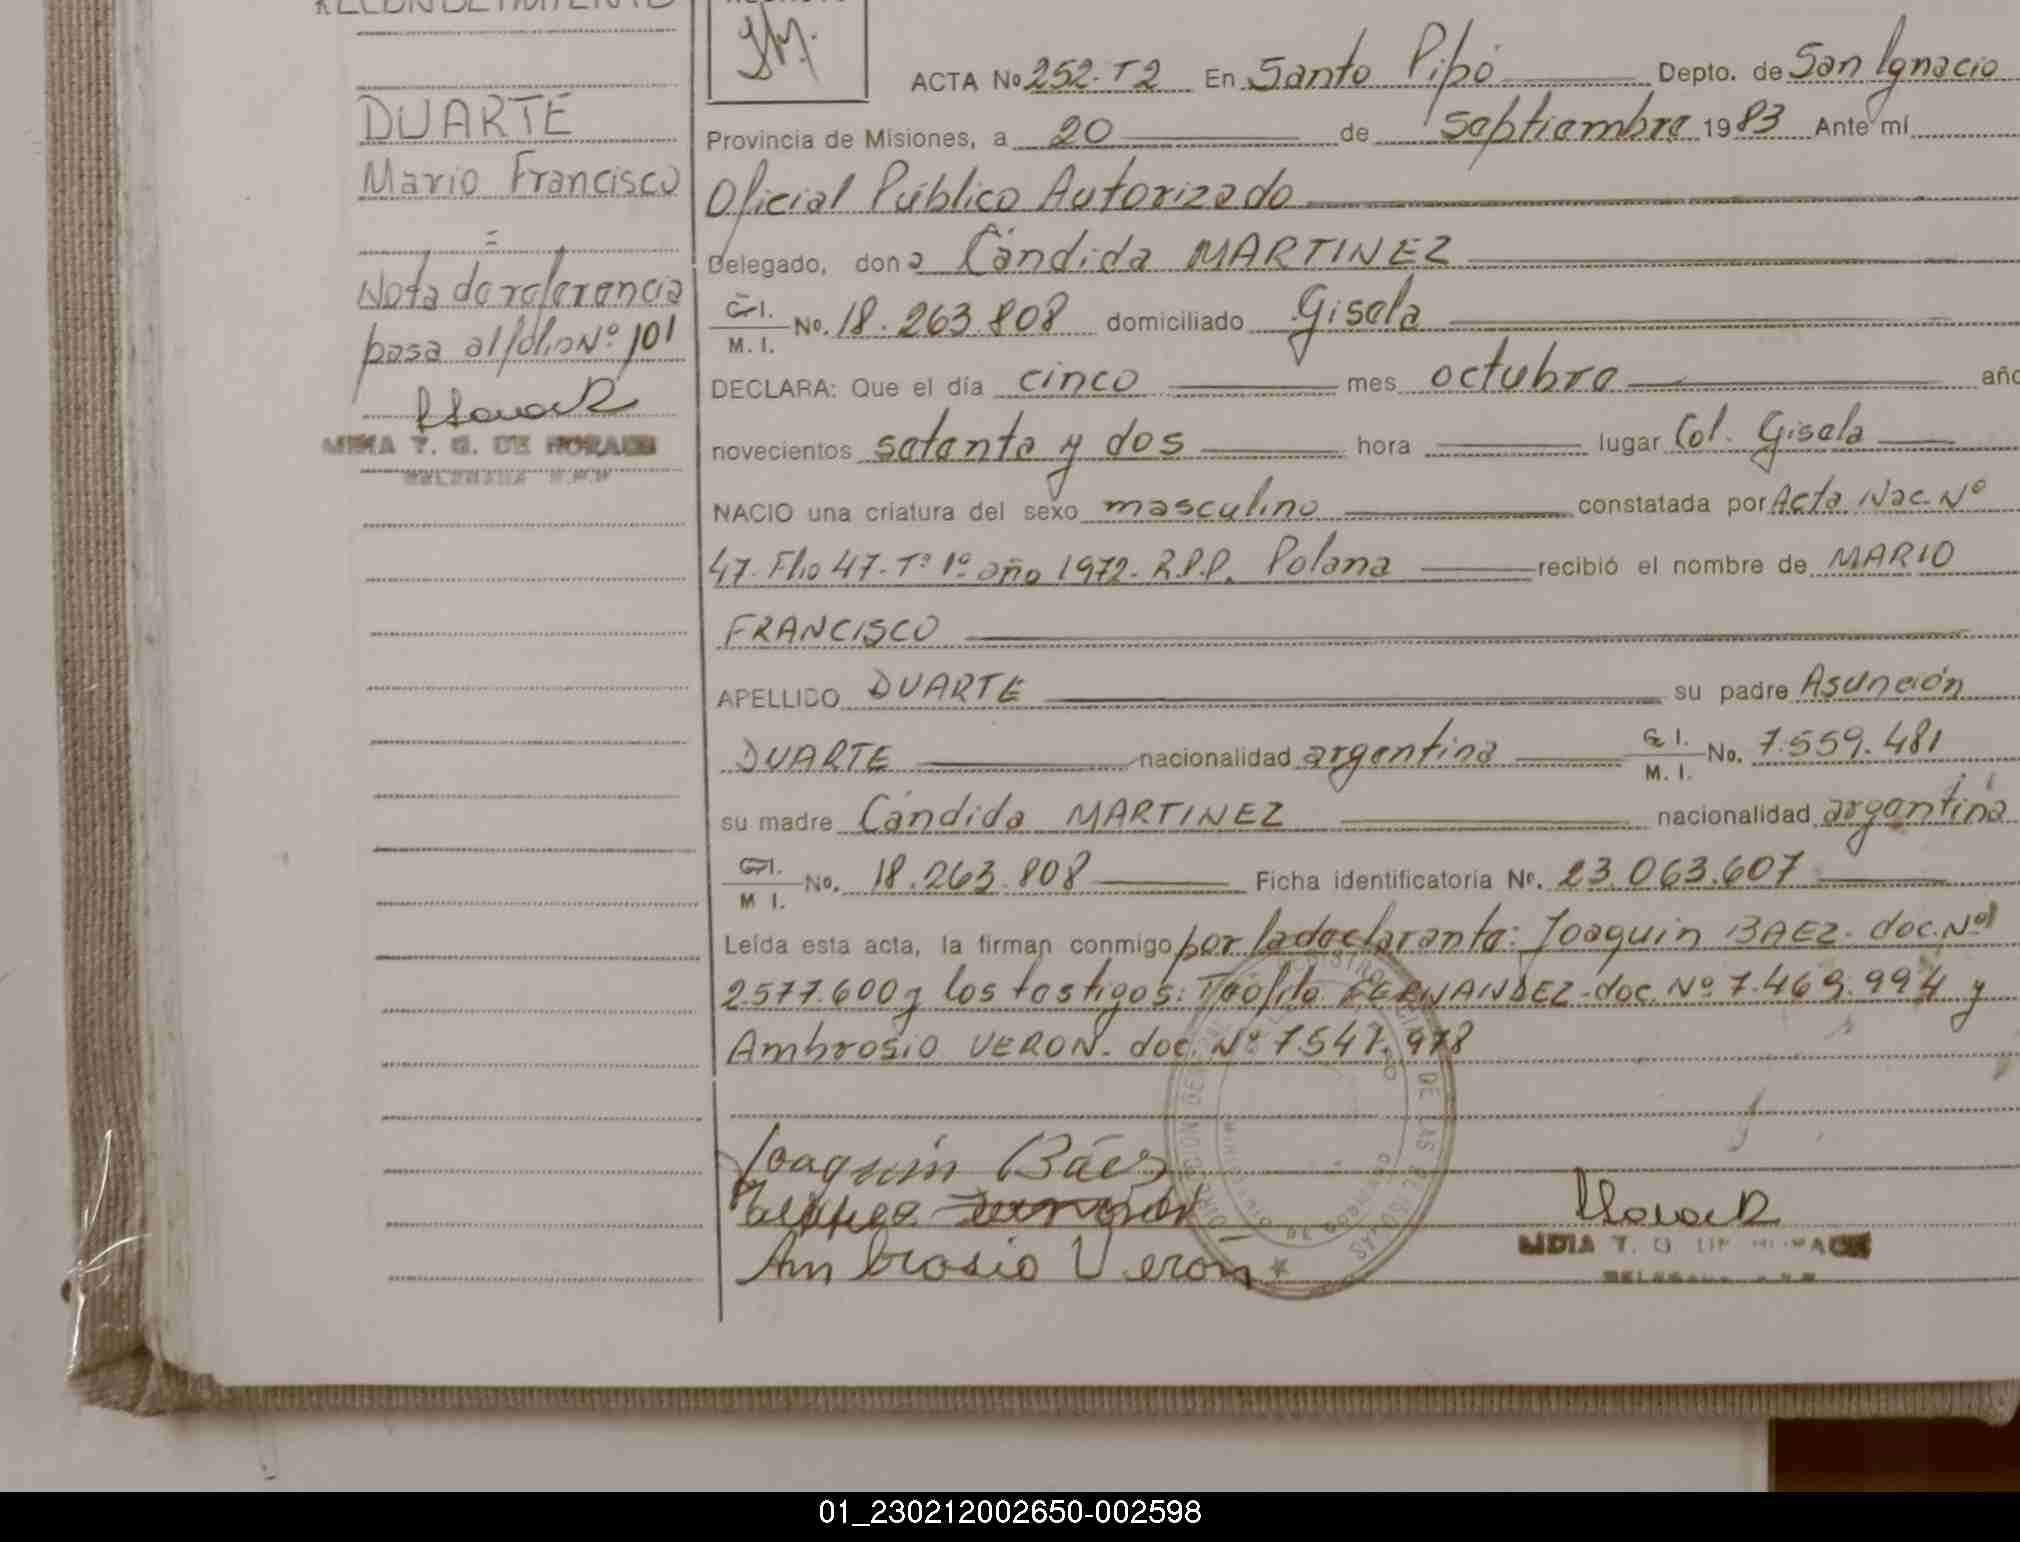 RECONOCIMIENTO
DUARTE
Mario Francisco
=
Nota de referencia
pasa al folio Nº 101
ACTA Nº 252-T2 En Santo Pipó Depto. de San Ignacio
Provincia de Misiones, a 20 de septiembre 1983 Ante mí
Oficial Público Autorizado
Delegado, don a Cándida MARTINEZ
C. I.
M. I. No. 18.263.808 domiciliado Gisela
DECLARA: Que el día cinco mes octubre año
novecientos setenta y dos hora lugar Col. Gisela
NACIO una criatura del sexo masculino constatada por Acta Nac. Nº
47. Flio 47. Tº 1º año 1972. R.P.P. Polana recibió el nombre de MARIO
FRANCISCO
APELLIDO DUARTE su padre Asunción
DUARTE nacionalidad argentina C. I.
M. I. No. 7.559.481
su madre Cándida MARTINEZ nacionalidad argentina
C. I.
M I. No. 18.263.808 Ficha identificatoria Nº. 23.063.607
Leída esta acta, la firman conmigo por la declarante: Joaquin BAEZ. doc. Nº
2.577.600 y los testigos: Teófilo FERNANDEZ. doc. Nº 7.469.994 y
Ambrosio VERON. doc. Nº 7.547.978
Joaquín Báez
Ambrosio Verón
01_230212002650-002598